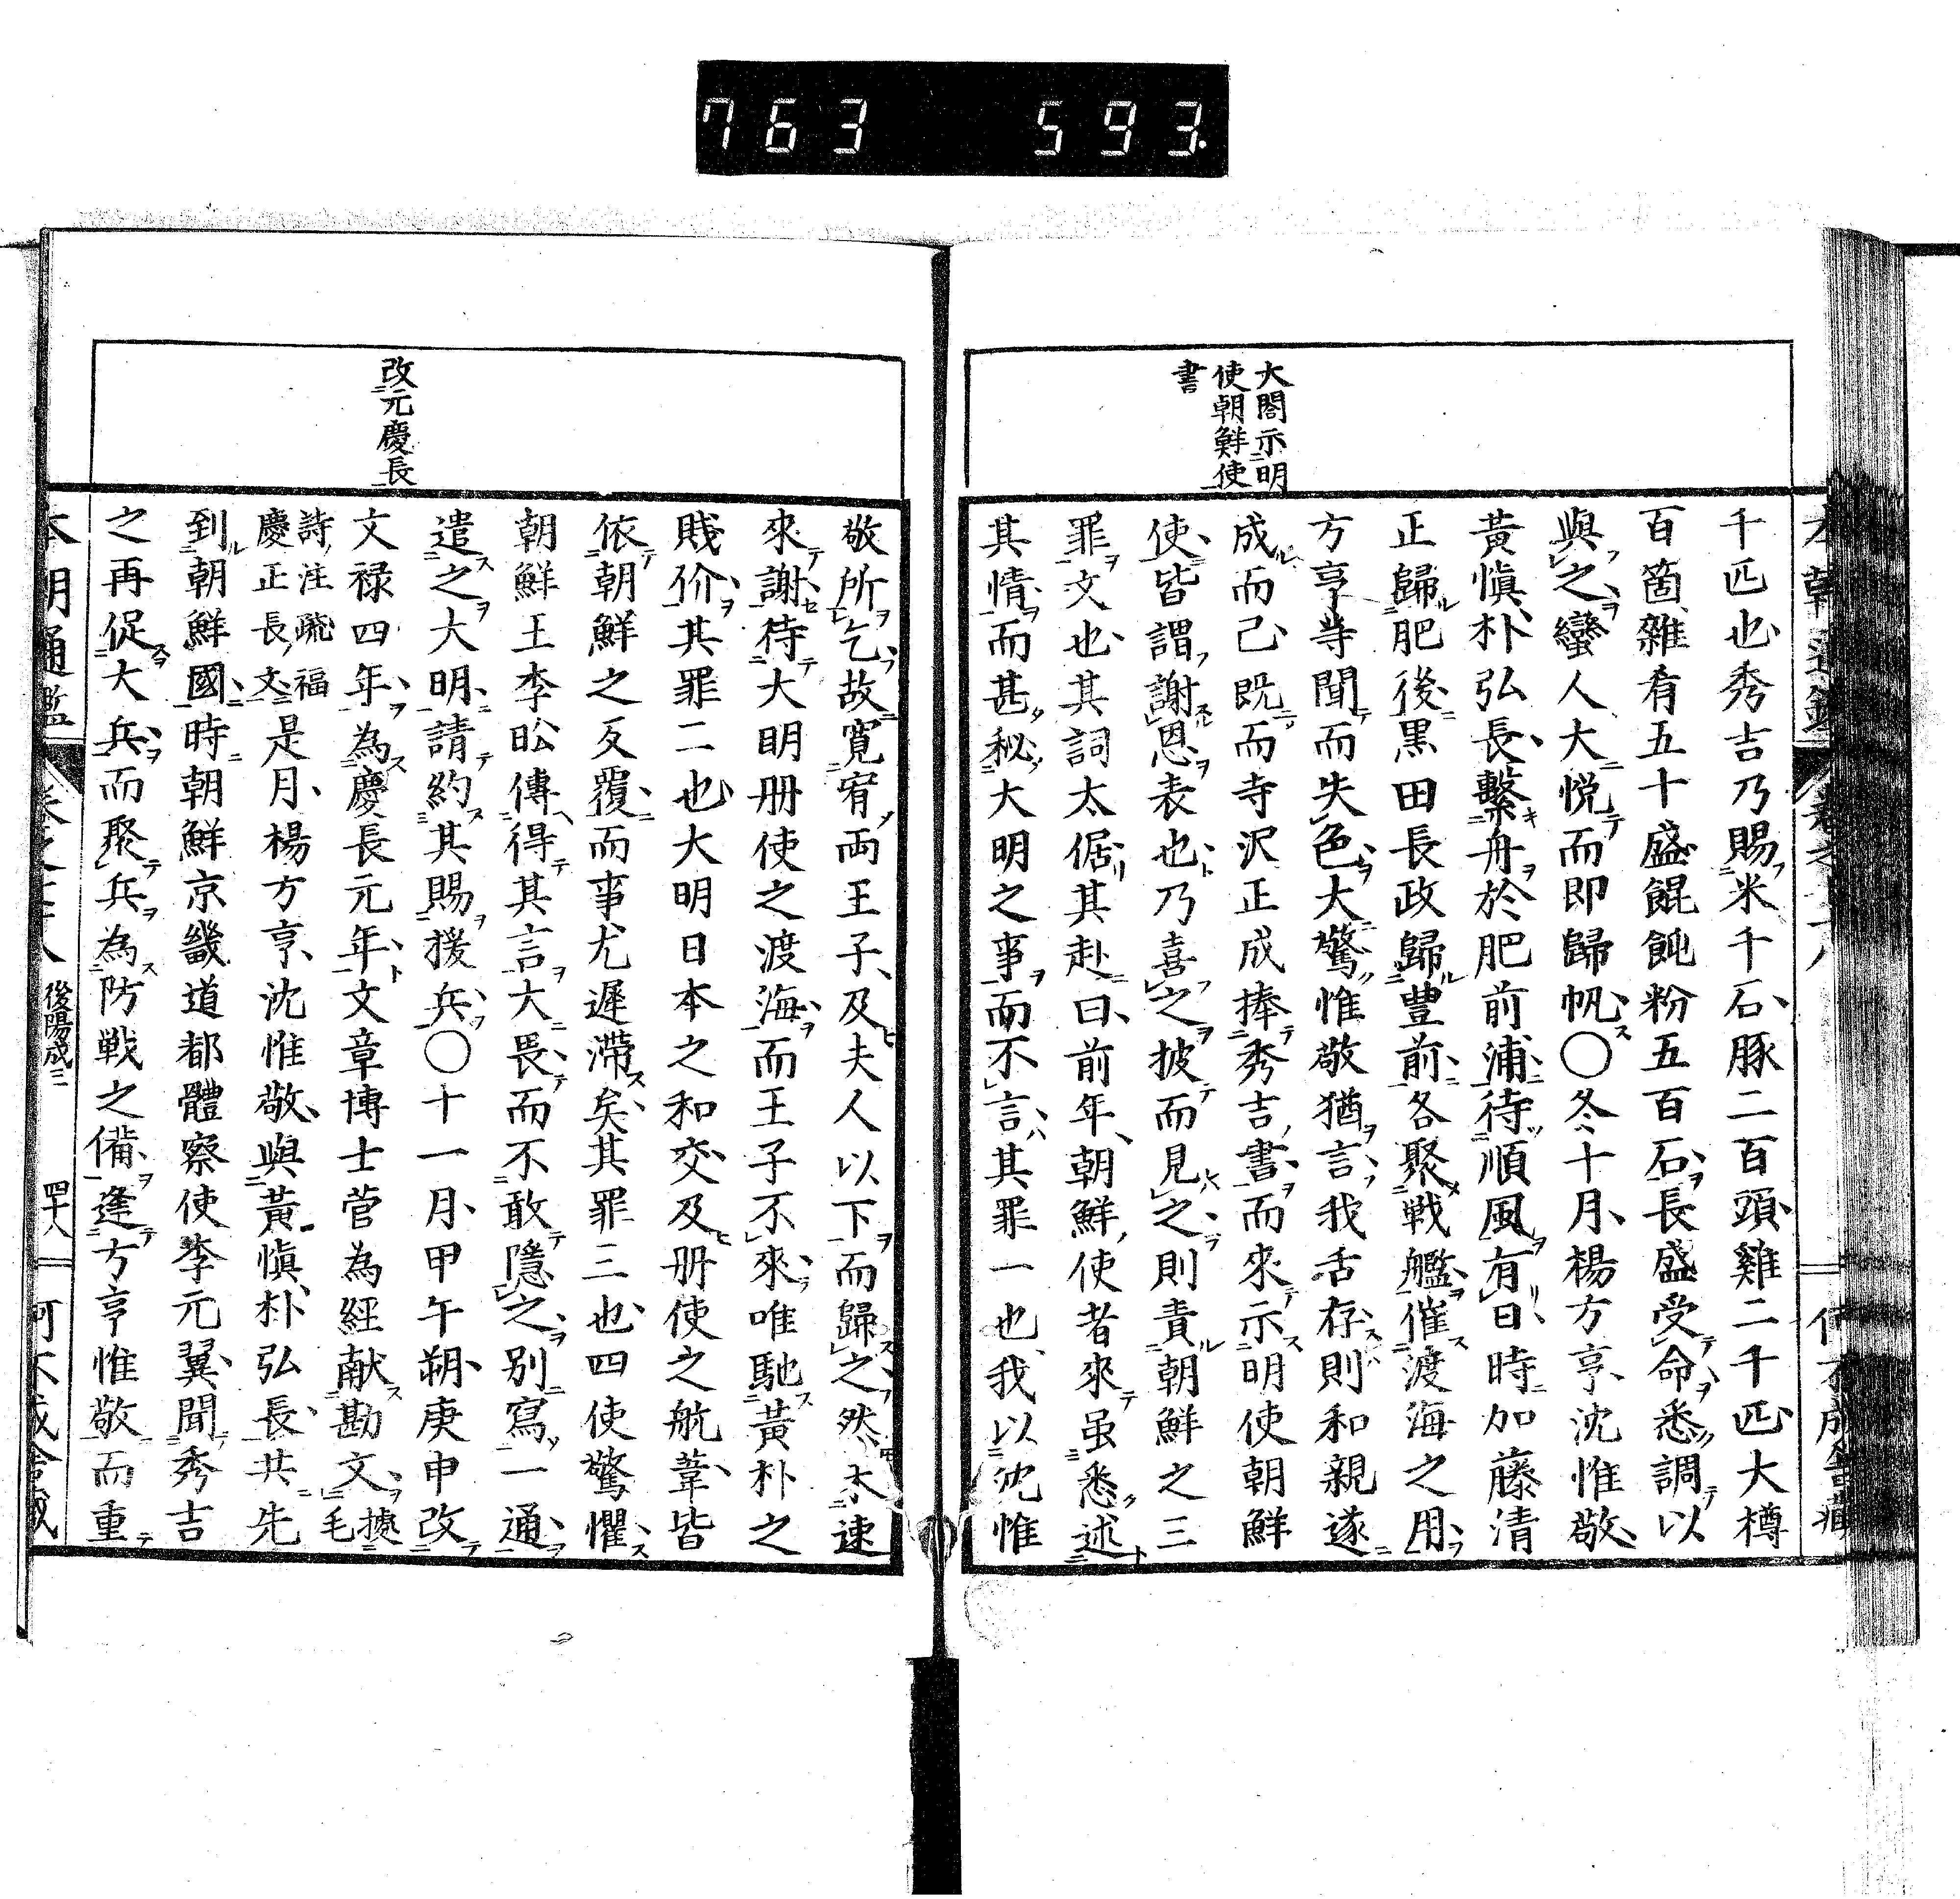 763 593.
大閤示明
使朝鮮使
書
千匹也秀吉乃賜米千石豚二百頭雞二千匹大樽
百箇雜肴五十盛餛飩粉五百石長盛受命悉調以
與之蠻人大悦而即歸帆〇冬十月楊方亨沈惟敬
黃愼朴弘長繫舟於肥前浦待順風有日時加藤清
正歸肥後黒田長政歸豊前各聚戦艦催渡海之用
方亨等聞而失色大驚惟敬猶言我舌存則和親遂
成而已既而寺沢正成捧秀吉書而來示明使朝鮮
使皆謂謝恩表也乃喜之披而見之則責朝鮮之三
罪文也其詞太倨其赴曰前年朝鮮使者來虽悉述
其情而甚秘大明之事而不言其罪一也我以沈惟
敬所乞故寛宥両王子及夫人以下而歸之然不速
來謝待大明册使之渡海而王子不來唯馳黃朴之
賎价其罪二也大明日本之和交及册使之航葦皆
依朝鮮之反覆而事尤遲滯矣其罪三也四使驚懼
朝鮮王李昖傳得其言大畏而不敢隱之别寫一通
遣之大明請約其賜援兵〇十一月甲午朔庚申改
改元慶長
文禄四年為慶長元年文章博士菅為經献勘文據毛
詩注疏福
慶正長文是月楊方亨沈惟敬與黃愼朴弘長共先
到朝鮮國時朝鮮京畿道都體察使李元翼聞秀吉
之再促大兵而聚兵為防戦之備逢方亨惟敬而重
本朝通鑑
後陽成三
四十八